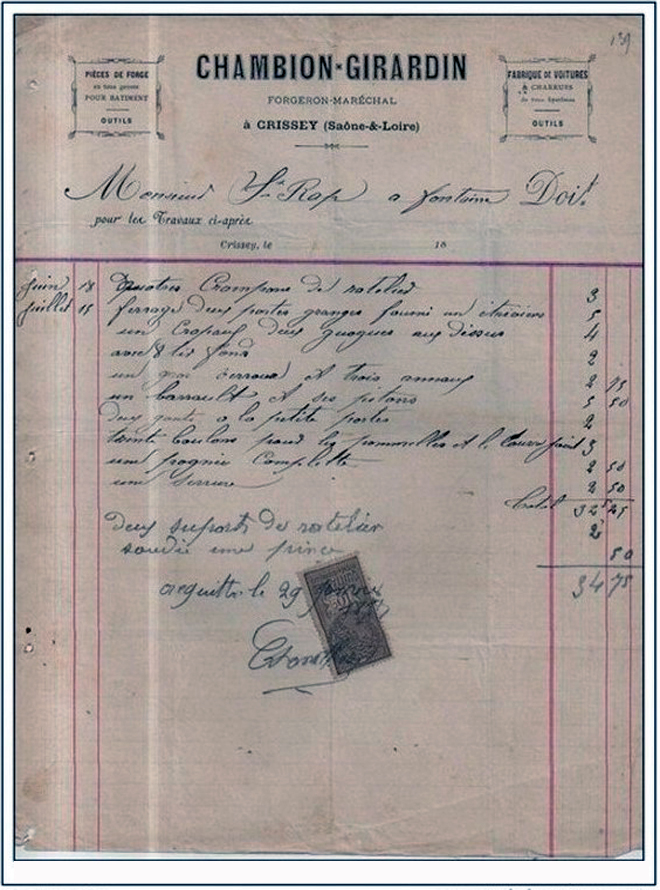 139
PIÈCES DE FORGE
en tous genres
POUR BATIMENT
OUTILS
CHAMBION-GIRARDIN
FORGERON-MARÉCHAL
à CRISSEY (Saône-&-Loire)
FABRIQUE DE VOITURES
& CHARRUES
de tous Systèmes
OUTILS
Monsieur St Rap a fontaine Doit
pour les Travaux ci-après
Crissey, le 18
juin 18 quatres Crampons de ratelier 3
juillet 15 ferrage deux portes granges fourni un 5
un deux aux dessus 4
2
un verroux et trois annaux 2 75
un barrault et ses pitons 5 50
deux a la petite portes 2
trente boulons pour les pommelles et 3
une pognier Complette 2 50
une serrure 2 50
Total 32 25
deux suports de ratelier 2
soudée une pince 50
34 75
acquitter le 29